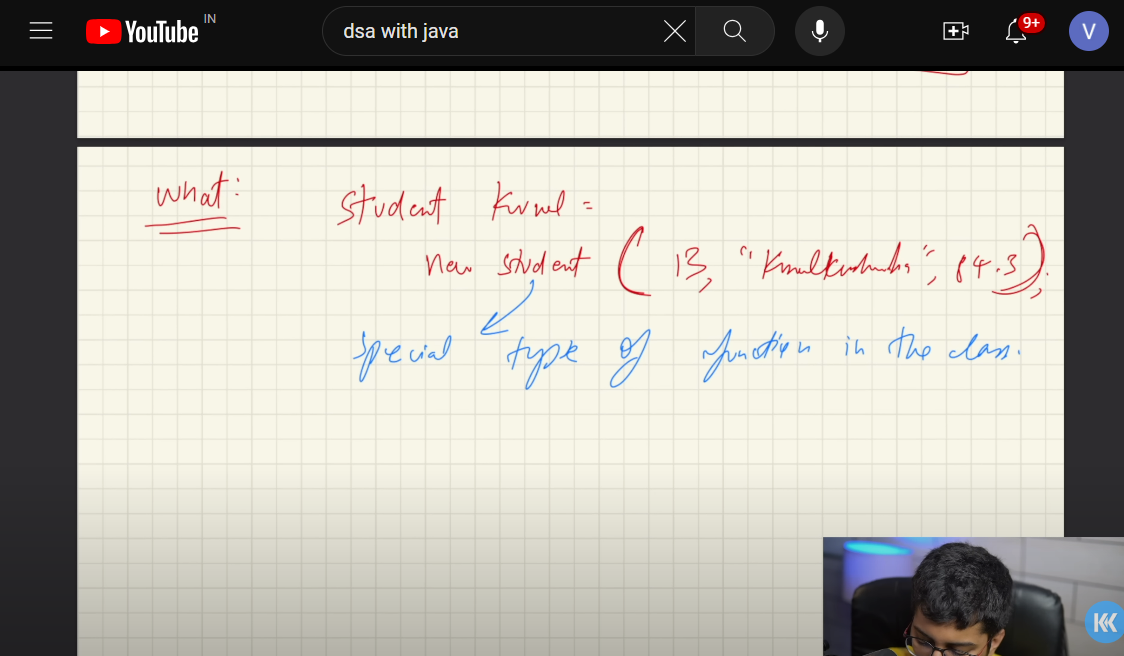 YouTube IN
dsa with java
9+
V
What:
Student Kunal =
new student ( 13, "Kunal Kushwaha", 84.3 );
special type of function in the class.
KK